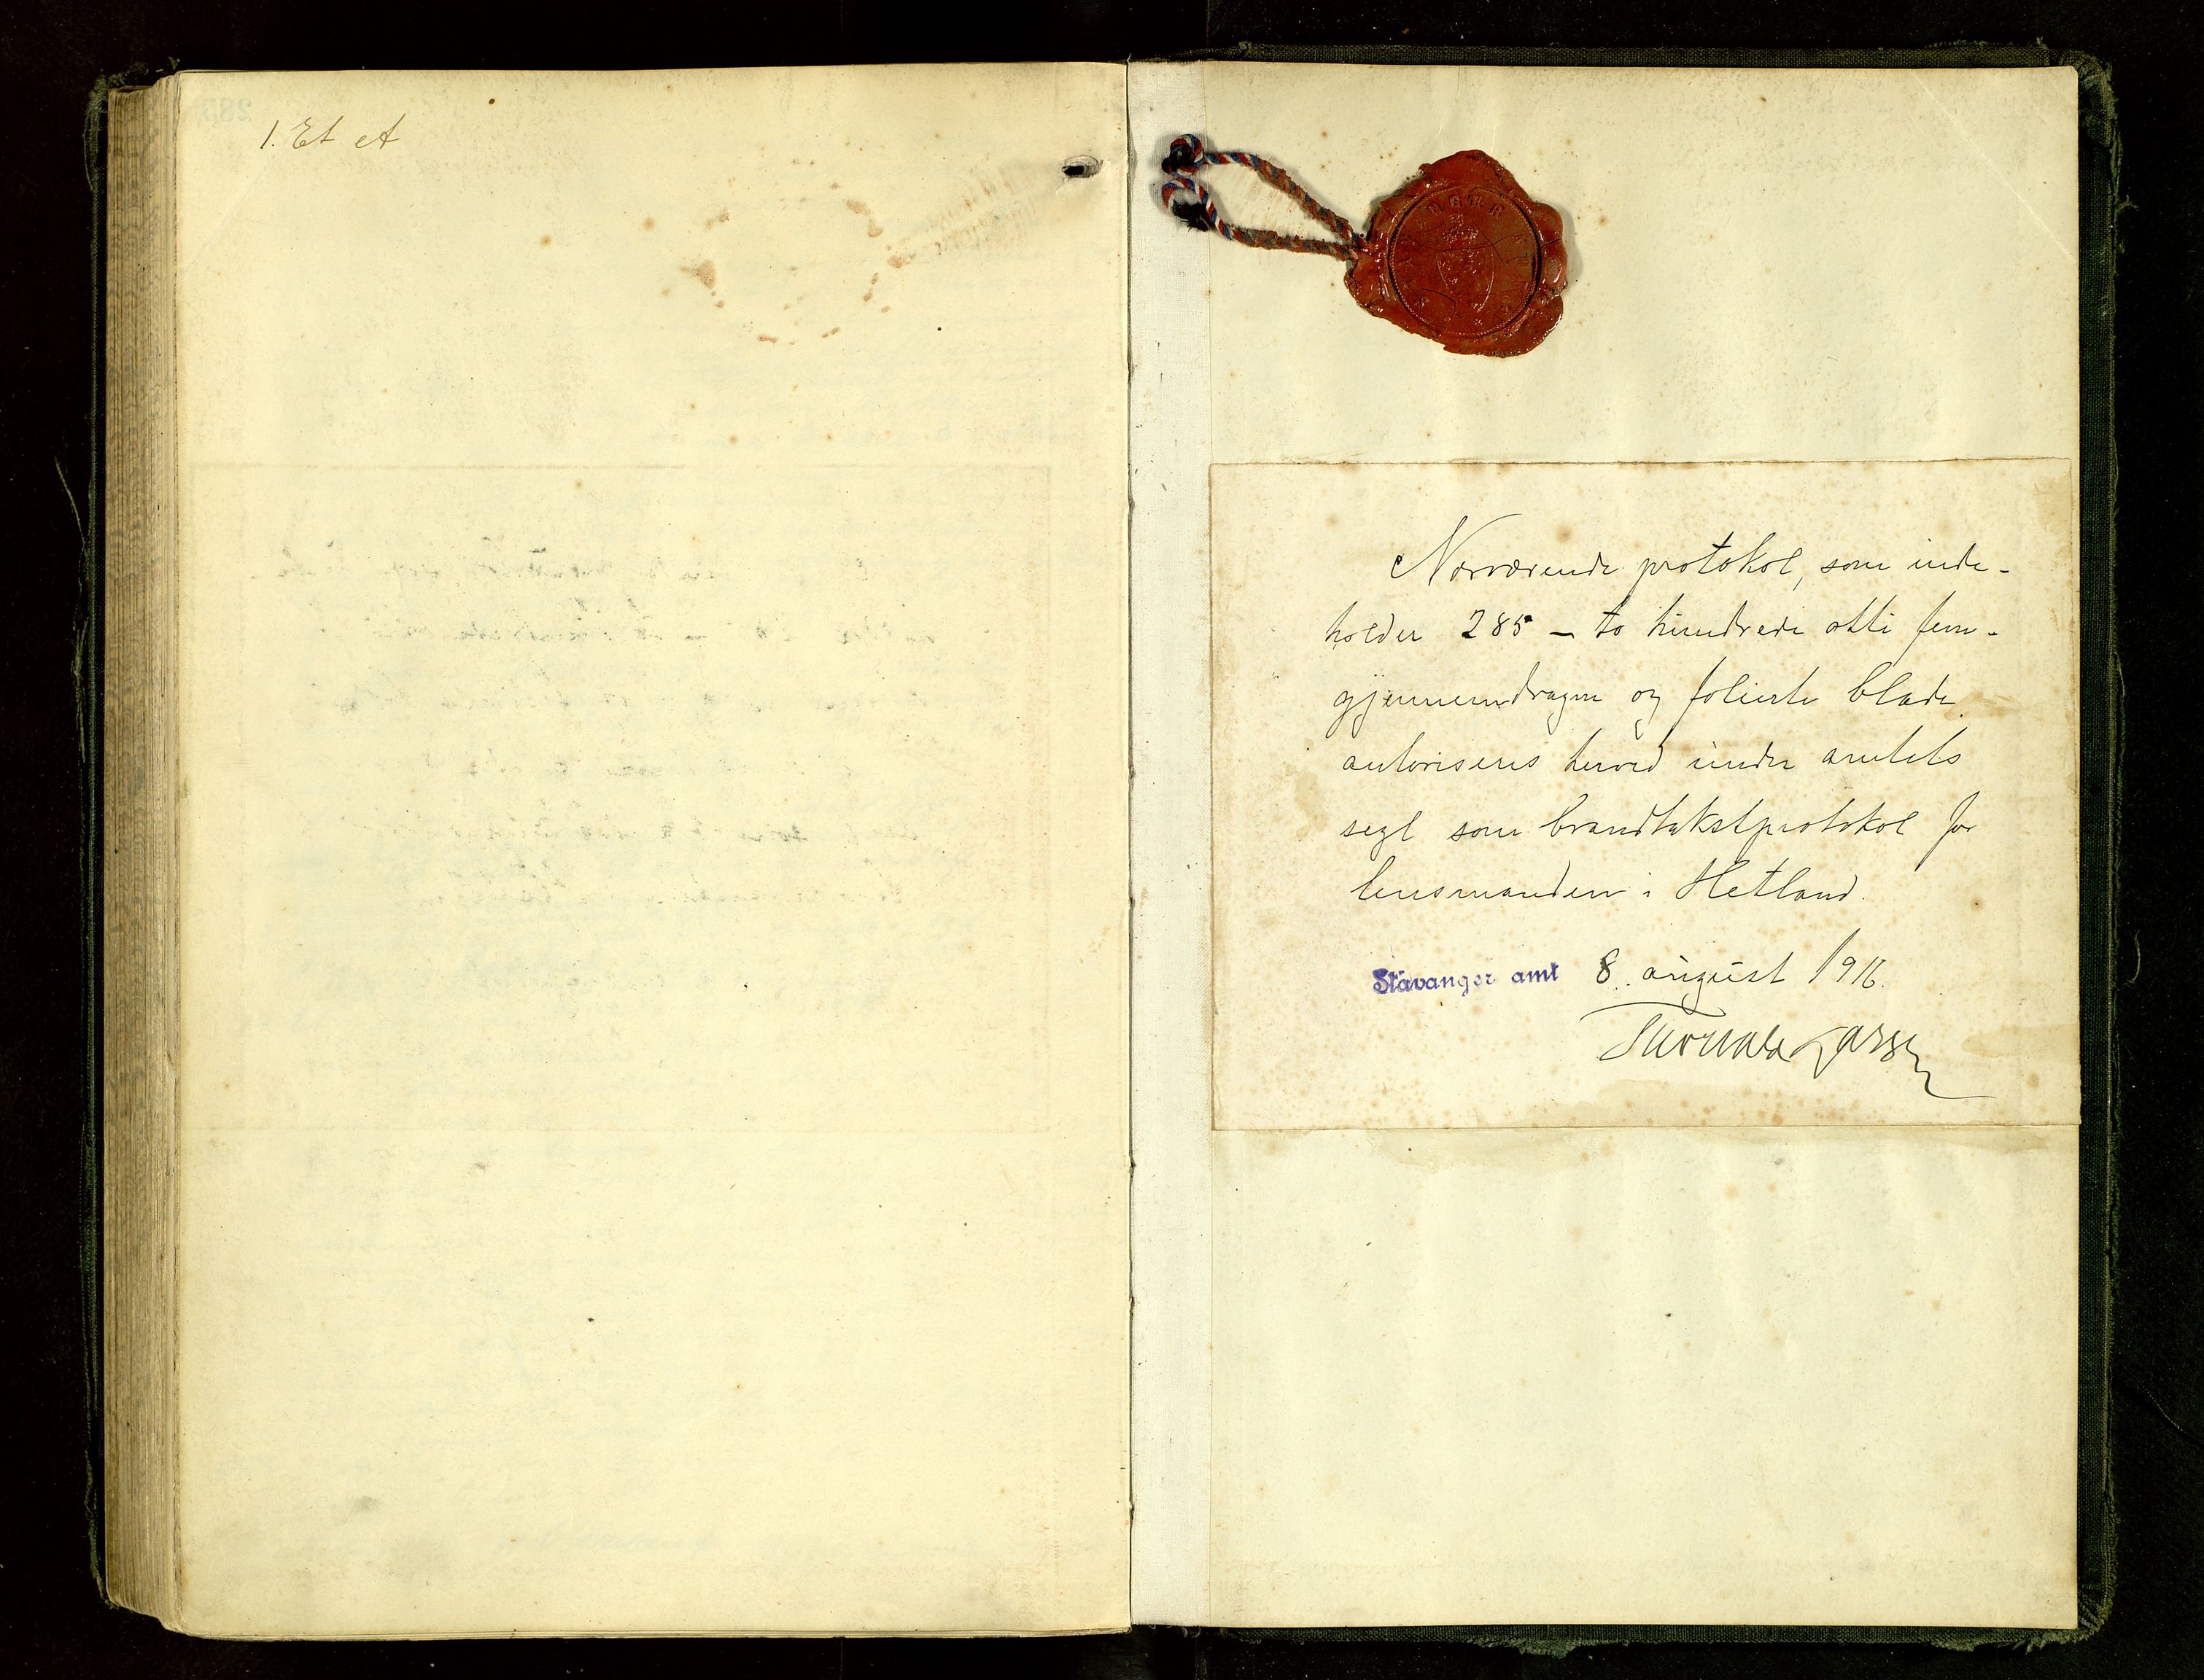 1. Et et
Nærværende protokol, som inde-
holder 285 – to hundrede otti fem -
gjennemdragne og folierte blade
autoriseres herved under amtets
segl som brandtakstprotokol for
lensmanden i Hetland.
Stavanger amt 8. august 1916.